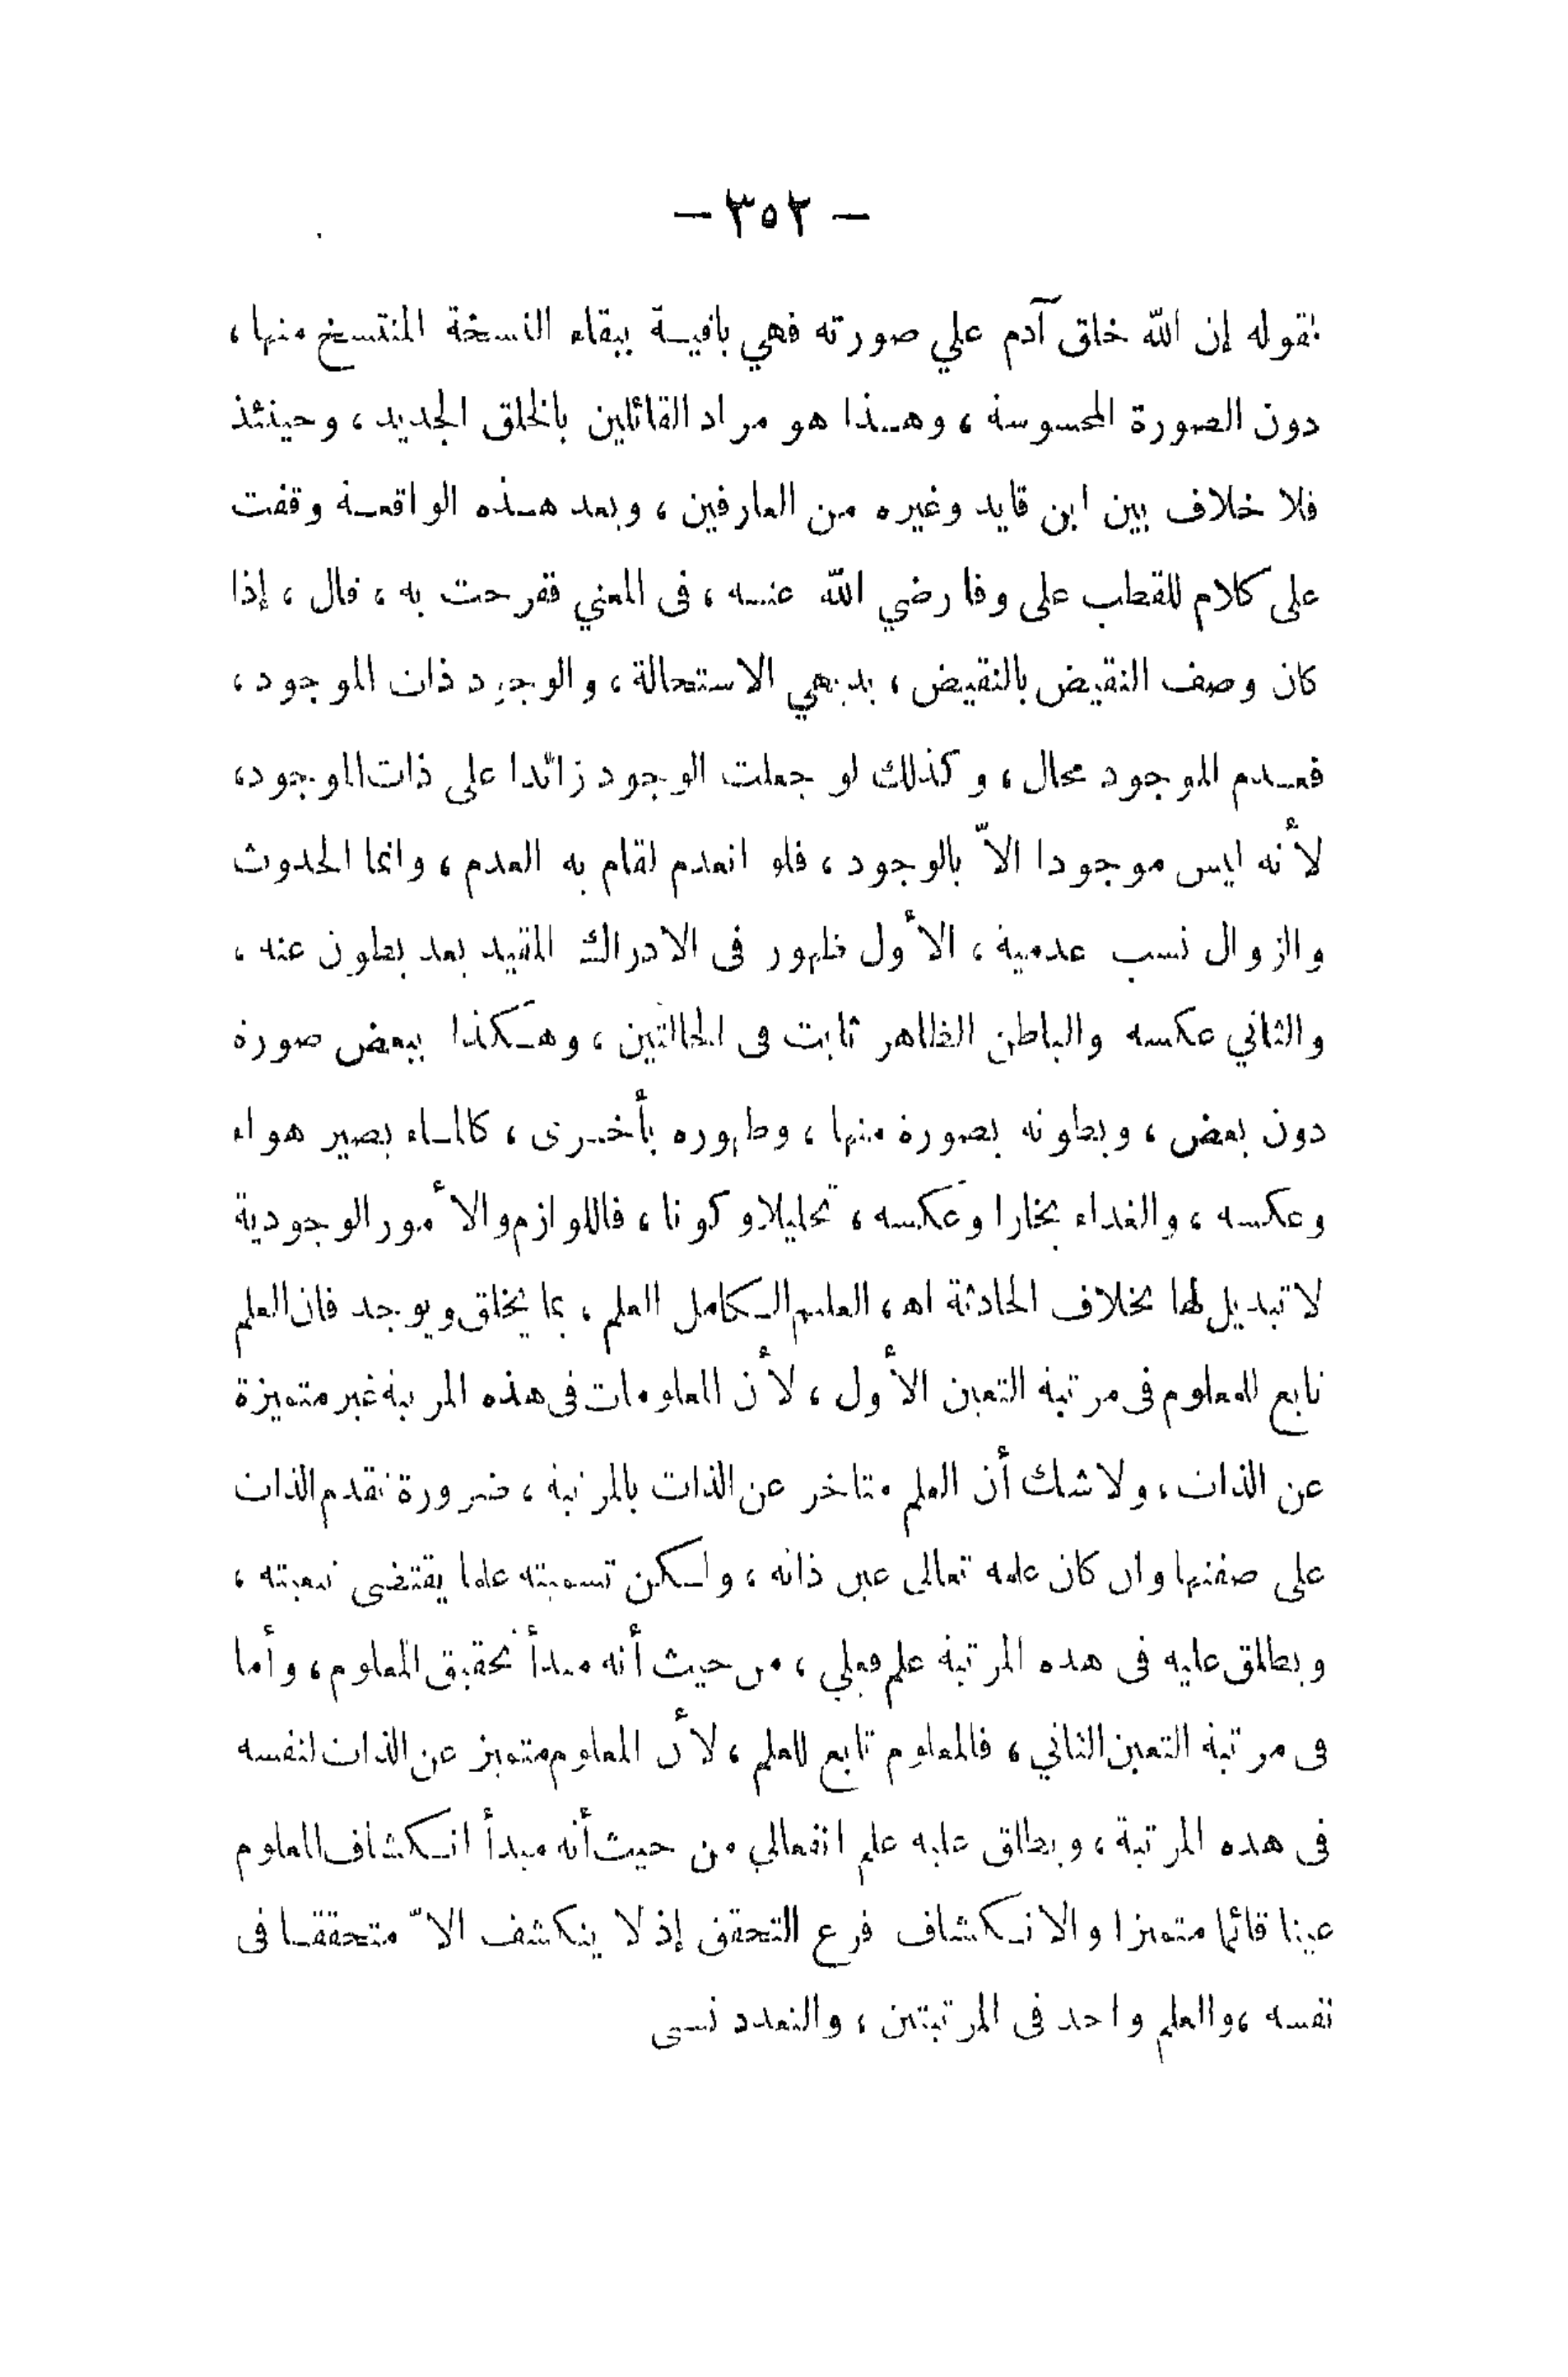 — ٣٥٢ —
بقوله إن الله خلق آدم علي صورته فهي باقيـة ببقاء النسخة المنتسخ منها ،
دون الصورة المحسوسة ، وهـذا هو مراد القائلين بالخلق الجديد ، وحينئذ
فلا خلاف بين ابن قايد وغيره من العارفين ، وبعد هـذه الواقعـة وقفت
على كلام للقطب على وفا رضي الله عنـه ، فى المعني ففرحت به ، قال ، إذا
كان وصف النقيض بالنقيض ، بديهي الاستحالة ، والوجود ذات الموجود ،
فعـدم الموجود محال ، وكذلك لو جعلت الوجود زائدا على ذات الموجود ،
لأنه ليس موجودا الاّ بالوجود ، فلو انعدم لقام به العدم ، وانما الحدوث
والزوال نسب عدمية ، الأول ظهور فى الادراك المقيد بعد بطون عنه ،
والثاني عكسه والباطن الظاهر ثابت فى الحالتين ، وهـكذا ببعض صورة
دون بعض ، وبطونه بصورة منها ، وظهوره بأخـرى ، كالمـاء يصير هواء
وعكسه ، والغداء بخارا وعكسه ، تحليلا وكونا ، فاللوازم والأمور الوجودية
لا تبديل لها بخلاف الحادثة اهـ ، العليم الـكامل العلم ، بما يخلق ويوجد فان العلم
تابع للمعلوم فى مرتبة التعين الأول ، لأن المعلومات فى هذه المرتبة غير متميزة
عن الذات ، ولا شك أن العلم متاخر عن الذات بالمرتبة ، ضرورة تقدم الذات
على صفتها وان كان علمه تعالى عين ذاته ، ولـكن تسميته علما يقتضى تبعيته ،
ويطلق عليه فى هده المرتبة علم فعلي ، من حيث أنه مبدأ تحقيق المعلوم ، وأما
فى مرتبة التعين الثاني ، فالمعلوم تابع للعلم ، لأن المعلوم متميز عن الذات لنفسه
فى هده المرتبة ، ويطلق عليه علم انفعالي من حيث أنه مبدأ انـكشاف المعلوم
عينا قائما متميزا والانـكشاف فرع التحقق إذ لا ينكشف الاّ متحققـا فى
نفسه ، والعلم واحد فى المرتبتين ، والتعدد نسبى